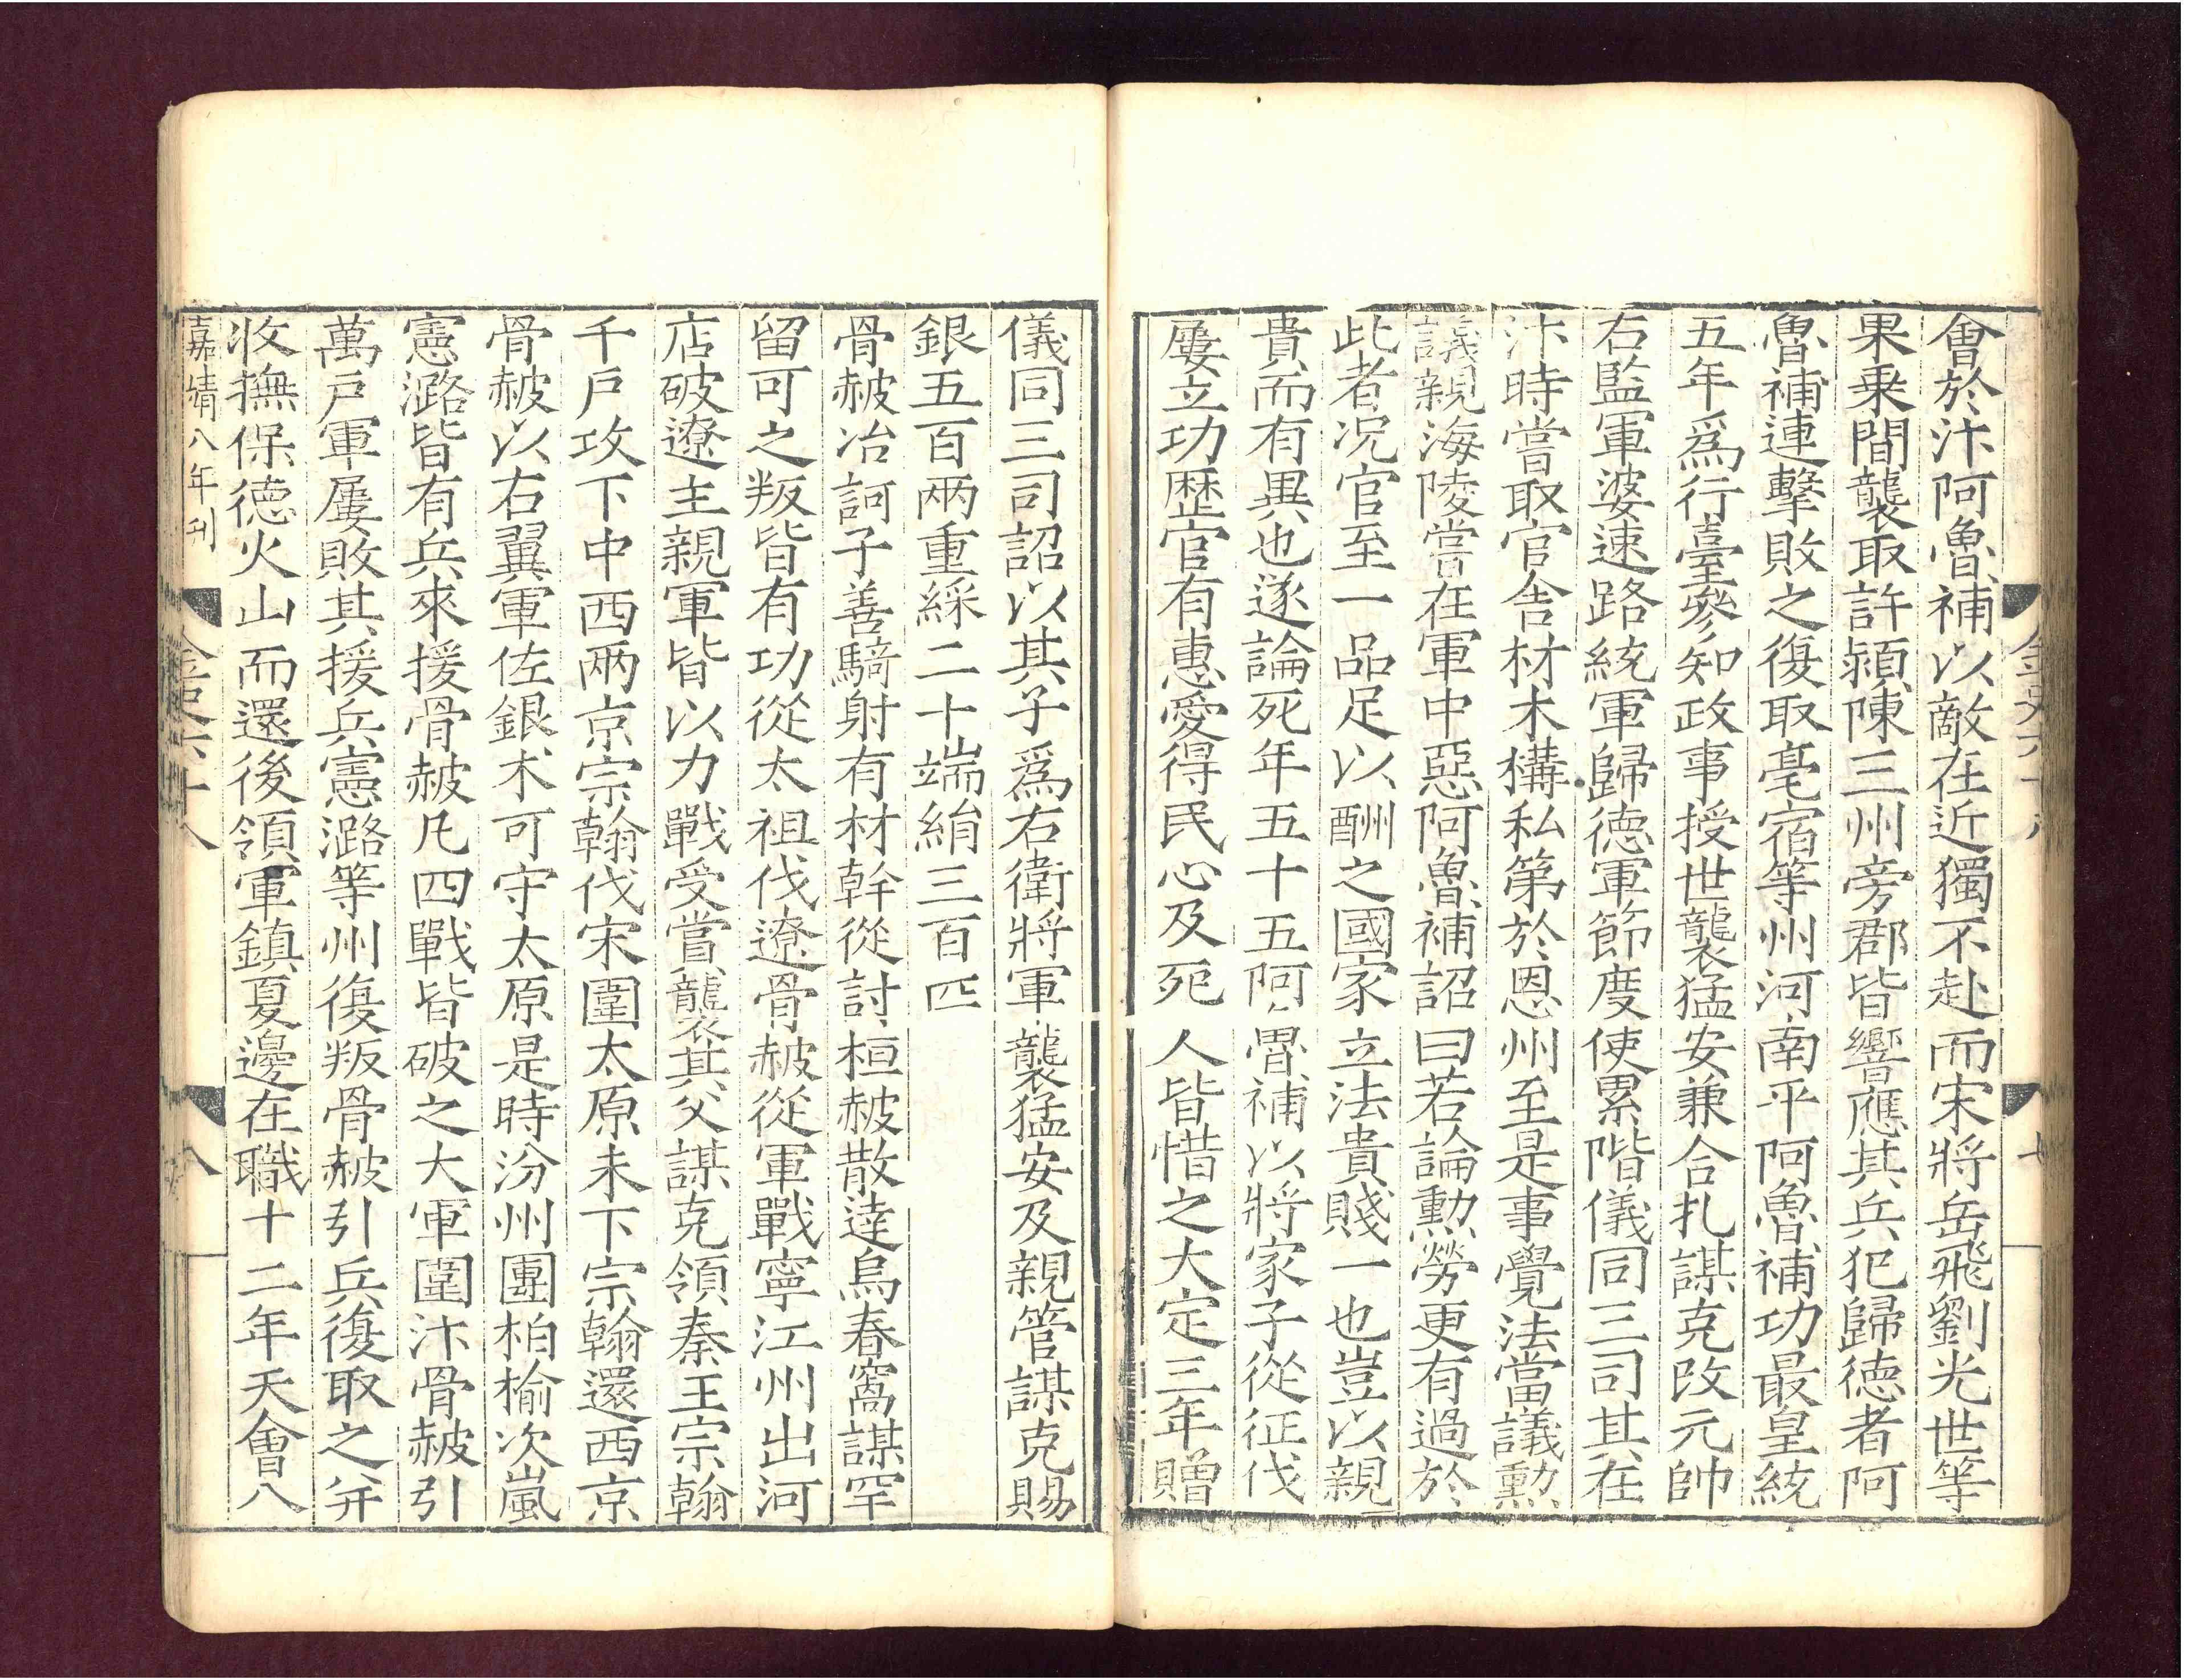 金史六十八
七
會於汴阿魯補以敵在近獨不赴而宋將岳飛劉光世等
果乗間襲取許潁陳三州旁郡皆響應其兵犯歸德者阿
魯補連擊敗之復取亳宿等州河南平阿魯補功最皇統
五年爲行臺參知政事授世襲猛安兼合扎謀克改元帥
右監軍婆速路統軍歸德軍節度使累階儀同三司其在
汴時嘗取官舍材木構私第於恩州至是事覺法當議勲
議親海陵嘗在軍中惡阿魯補詔曰若論勲勞更有過於
此者况官至一品足以酬之國家立法貴賤一也豈以親
貴而有異也遂論死年五十五阿魯補以將家子從征伐
屢立功歴官有惠愛得民心及死人皆惜之大定三年贈
儀同三司詔以其子爲右衛將軍襲猛安及親管謀克賜
銀五百兩重綵二十端絹三百匹
骨赧冶訶子善騎射有材幹從討桓赧散逹烏春窩謀罕
留可之叛皆有功從太祖伐遼骨赧從軍戰寧江州出河
店破遼主親軍皆以力戰受賞襲其父謀克領秦王宗翰
千戸攻下中西兩京宗翰伐宋圍太原未下宗翰還西京
骨赧以右翼軍佐銀术可守太原是時汾州團柏榆次嵐
憲潞皆有兵來援骨赧凡四戰皆破之大軍圍汴骨赧引
萬戸軍屢敗其援兵憲潞等州復叛骨赧引兵復取之并
收撫保德火山而還後領軍鎮夏邊在職十二年天會八
嘉靖八年刊
金史六十八
八